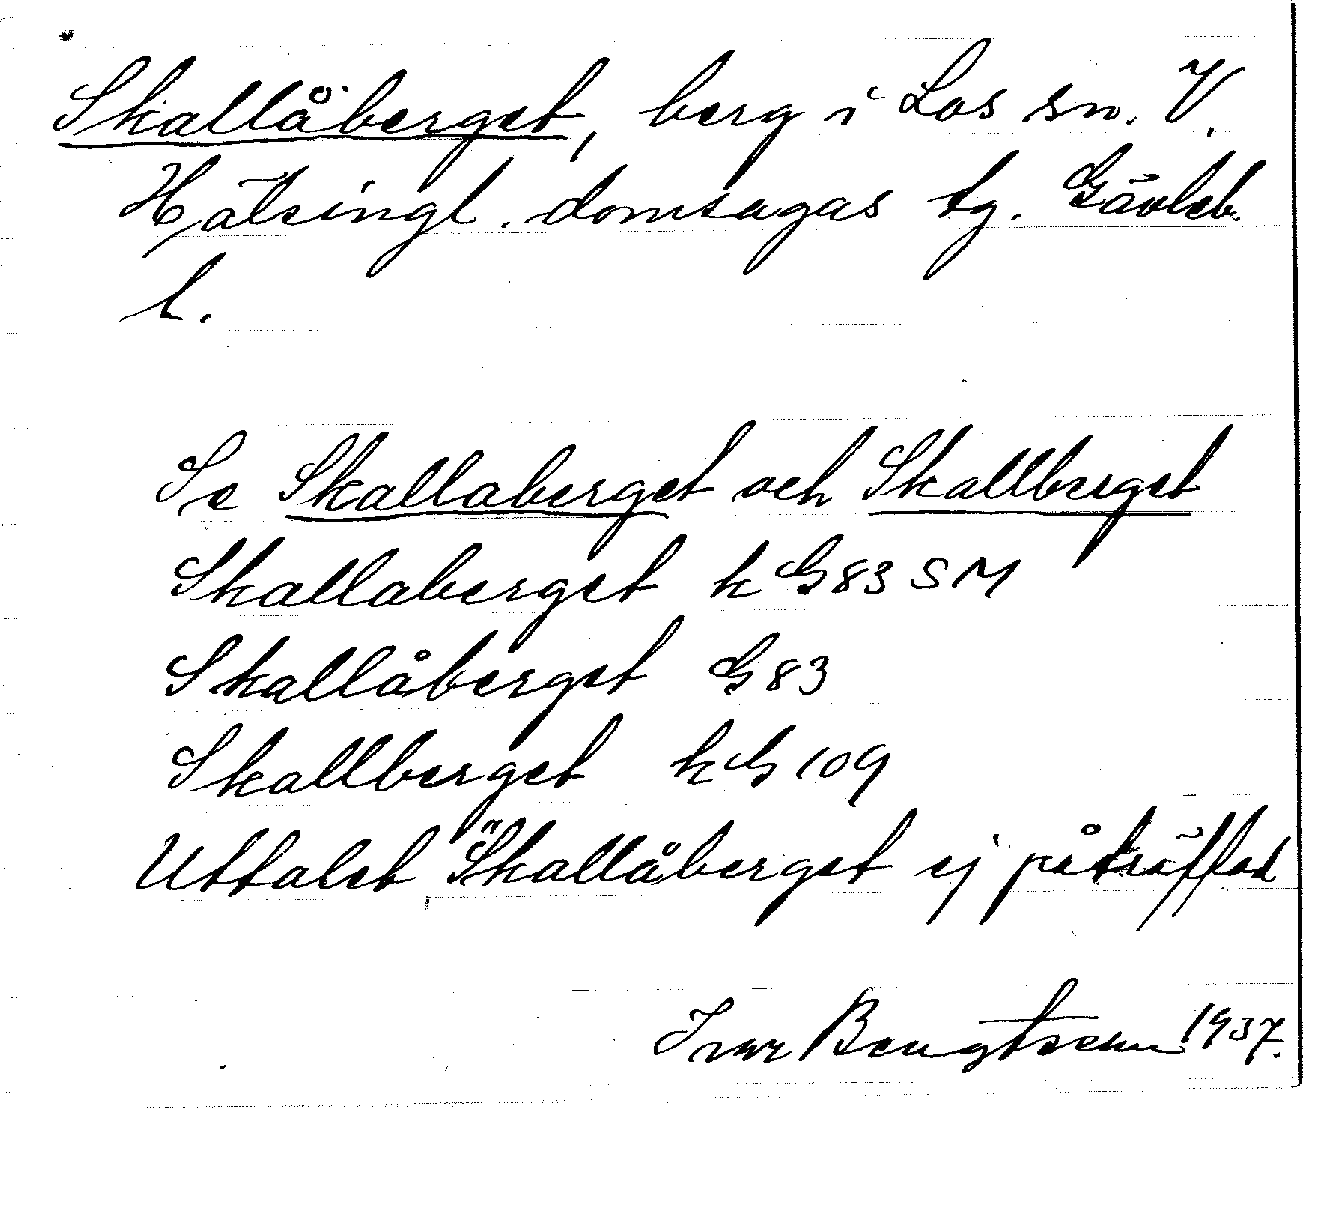 Skallåberget, berg i Los sn. V.
Hälsingl. domsagas tg. Gävleb.
l.
Se Skallaberget och Skallberget
Skallaberget k G 83 S M
Skallåberget G 83
Skallberget k G 109
Uttalet "Skallåberget ej påträffad
Ivar Bengtsson 1937.